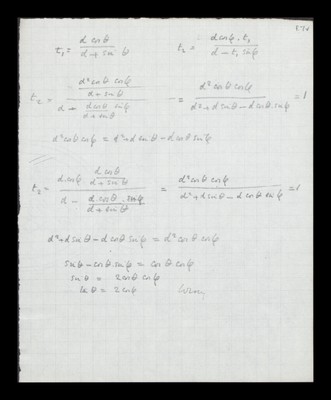 t₁ = d cosθ / (d + sinθ)    t₂ = d cosφ · t₁ / (d − t₁ sinφ)
t₂ = (d² cosθ cosφ / (d + sinθ)) / (d + (d cosθ sinφ / (d + sinθ))) = d² cosθ cosφ / (d² + d sinθ − d cosθ sinφ) = 1
d² cosθ cosφ = d² + d sinθ − d cosθ sinφ
t₂ = (d cosφ · d cosθ / (d + sinθ)) / (d − (d cosθ · sinφ / (d + sinθ))) = d² cosθ cosφ / (d² + d sinθ − d cosθ sinφ) = 1
d² + d sinθ − d cosθ sinφ = d² cosθ cosφ
sinθ − cosθ · sinφ = cosθ cosφ
sinθ = 2 cosθ cosφ
tanθ = 2 cosφ